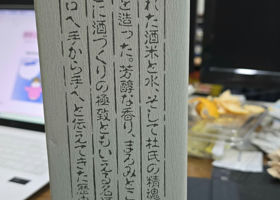 れた酒米と水、そして杜氏の精魂
を造った。芳醇な香り、まろみとこ
に酒づくりの極致ともいえる名酒
口へ、手から手へと伝えてきた歴史